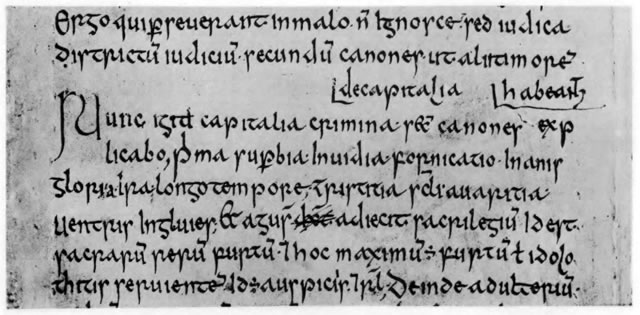 Ergo qui ꝑseuerant in malo · n̄ Ignosce · sed iudica
districtū iudiciū · secundū canones · ut alii timorē
de capitalia habeant̄
Nunc igit̄ capitalia crimina · scđ canones · exp
licabo, pͥma suꝑbia · Inuidia · fornicatio · Inanis
gloria · Ira longo tempore, tristitia sc̄li auaritia ·
uentris Ingluies, & agus̄ adiecit sacrilegiū · Id est
sacrarū rerū furtū · ⁊ hoc maximū ÷ furtū ł idolo
thitis seruientē · Id ÷ auspiciis · ⁊ rł, Deinde adulteriū ·